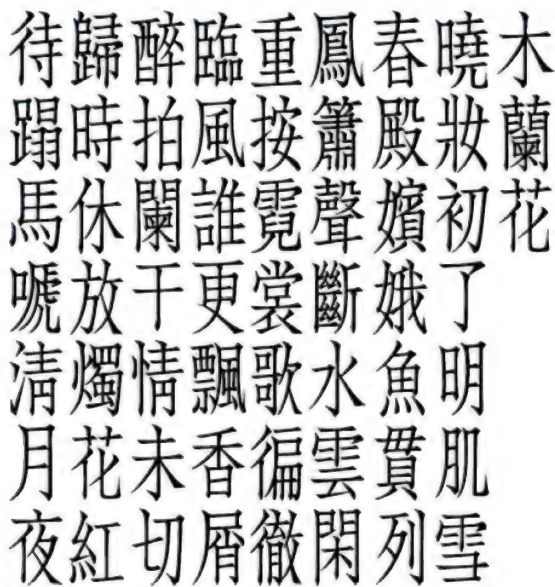 木蘭花
曉妝初了明肌雪
春殿嬪娥魚貫列
鳳簫聲斷水雲閑
重按霓裳歌徧徹
臨風誰更飄香屑
醉拍闌干情未切
歸時休放燭花紅
待蹋馬嗁清月夜